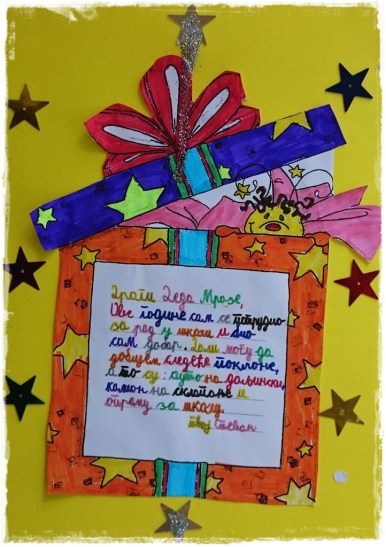 Драги Деда Мразе,
Ове године сам се потрудио
за рад у школи и био
сам добар. Дали могу да
добијем следеће поклоне,
а то су: ауто на даљински,
камон на склапање и
опрему за школу.
твој Стеван